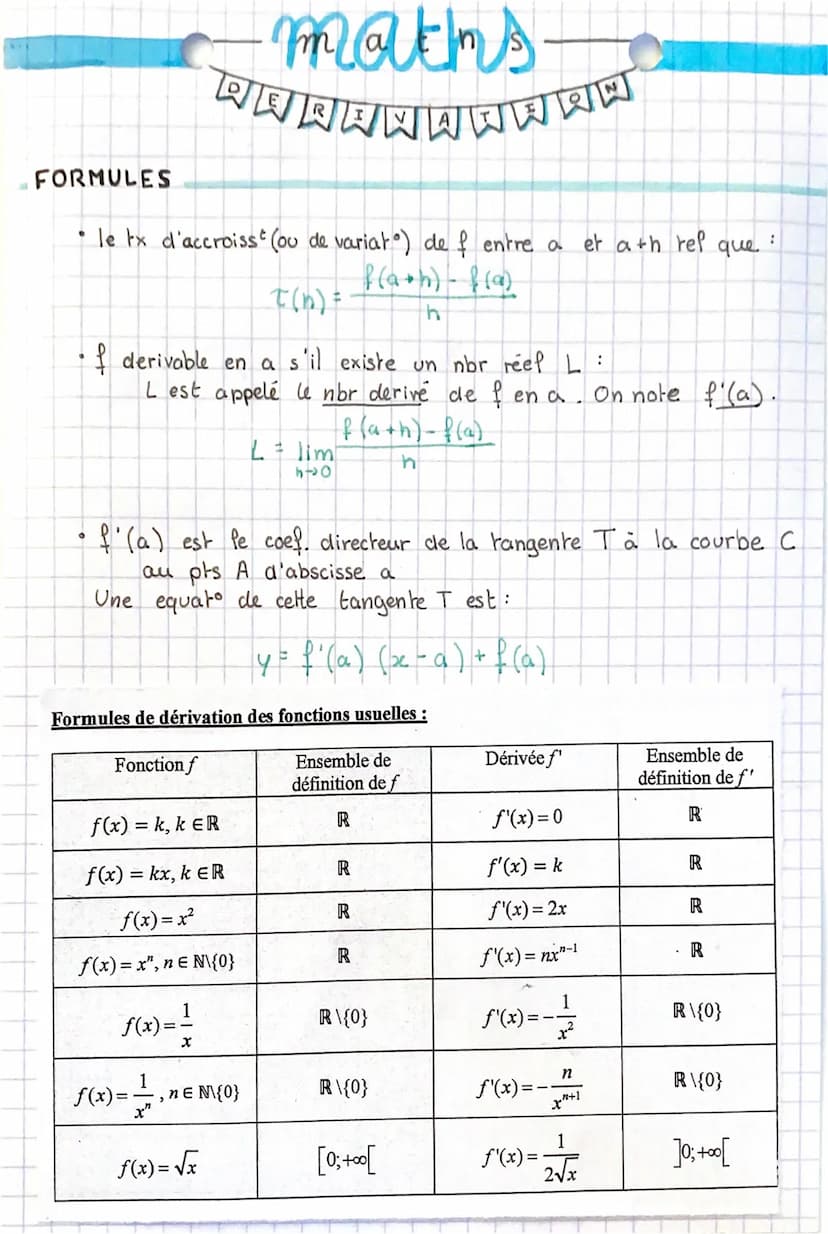 maths
DERIVATION
FORMULES
• le tx d'accroissᵗ (ou de variat°) de f entre a et a+h tel que :
τ(h) = f(a+h) - f(a) / h
• f derivable en a s'il existe un nbr réel L :
L est appelé le nbr derivé de f en a. On note f'(a).
L = lim h→0 f(a+h) - f(a) / h
• f'(a) est le coef. directeur de la tangente T à la courbe C
au pts A d'abscisse a
Une equat° de cette tangente T est :
y = f'(a) (x - a) + f(a)
Formules de dérivation des fonctions usuelles :
Fonction f | Ensemble de définition de f | Dérivée f' | Ensemble de définition de f'
f(x) = k, k ∈ ℝ | ℝ | f'(x) = 0 | ℝ
f(x) = kx, k ∈ ℝ | ℝ | f'(x) = k | ℝ
f(x) = x² | ℝ | f'(x) = 2x | ℝ
f(x) = xⁿ, n ∈ ℕ\{0} | ℝ | f'(x) = nxⁿ⁻¹ | ℝ
f(x) = 1/x | ℝ\{0} | f'(x) = -1/x² | ℝ\{0}
f(x) = 1/xⁿ, n ∈ ℕ\{0} | ℝ\{0} | f'(x) = -n/xⁿ⁺¹ | ℝ\{0}
f(x) = √x | [0;+∞[ | f'(x) = 1/2√x | ]0;+∞[